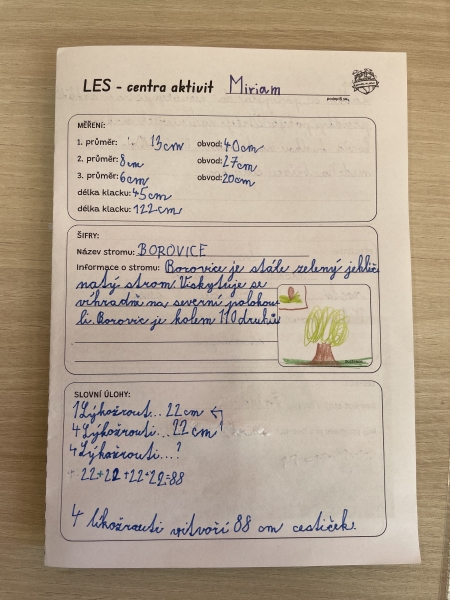 LES - centra aktivit Miriam
MĚŘENÍ:
1. průměr: 13cm obvod: 40cm
2. průměr: 8cm obvod: 27cm
3. průměr: 6cm obvod: 20cm
délka klacku: 45cm
délka klacku: 122cm
ŠIFRY:
Název stromu: BOROVICE
Informace o stromu: Borovice je stále zelený jehlič
natý strom. Vískytuje se
víhradně na severní polokou
li. Borovic je kolem 110 druhů
SLOVNÍ ÚLOHY:
1 Lýkožrout... 22 cm
4 Lýkožrouti... 22 cm
4 Lýkožrouti...?
22+22+22+22=88
4 líkožrouti vitvoří 88 cm cestiček.